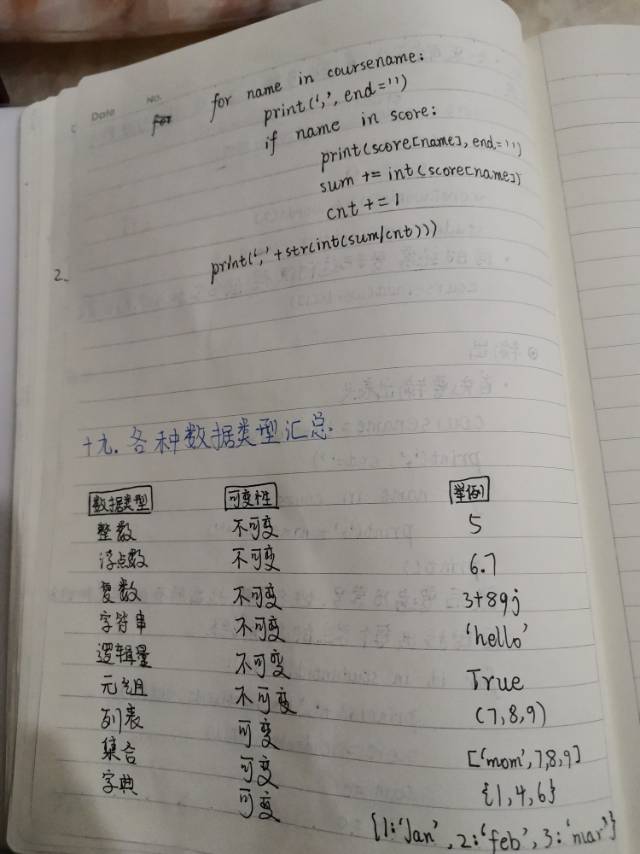 Date No.
for name in coursename:
print(',', end='')
if name in score:
print(score[name], end='')
sum += int(score[name])
cnt += 1
print(',' + str(int(sum/cnt)))
2.
十九. 各种数据类型汇总.
数据类型 可变性 举例
整数 不可变 5
浮点数 不可变 6.7
复数 不可变 3+89j
字符串 不可变 'hello'
逻辑量 不可变 True
元组 不可变 (7,8,9)
列表 可变 ['mom',7,8,9]
集合 可变 {1,4,6}
字典 可变 {1:'Jan', 2:'feb', 3:'mar'}